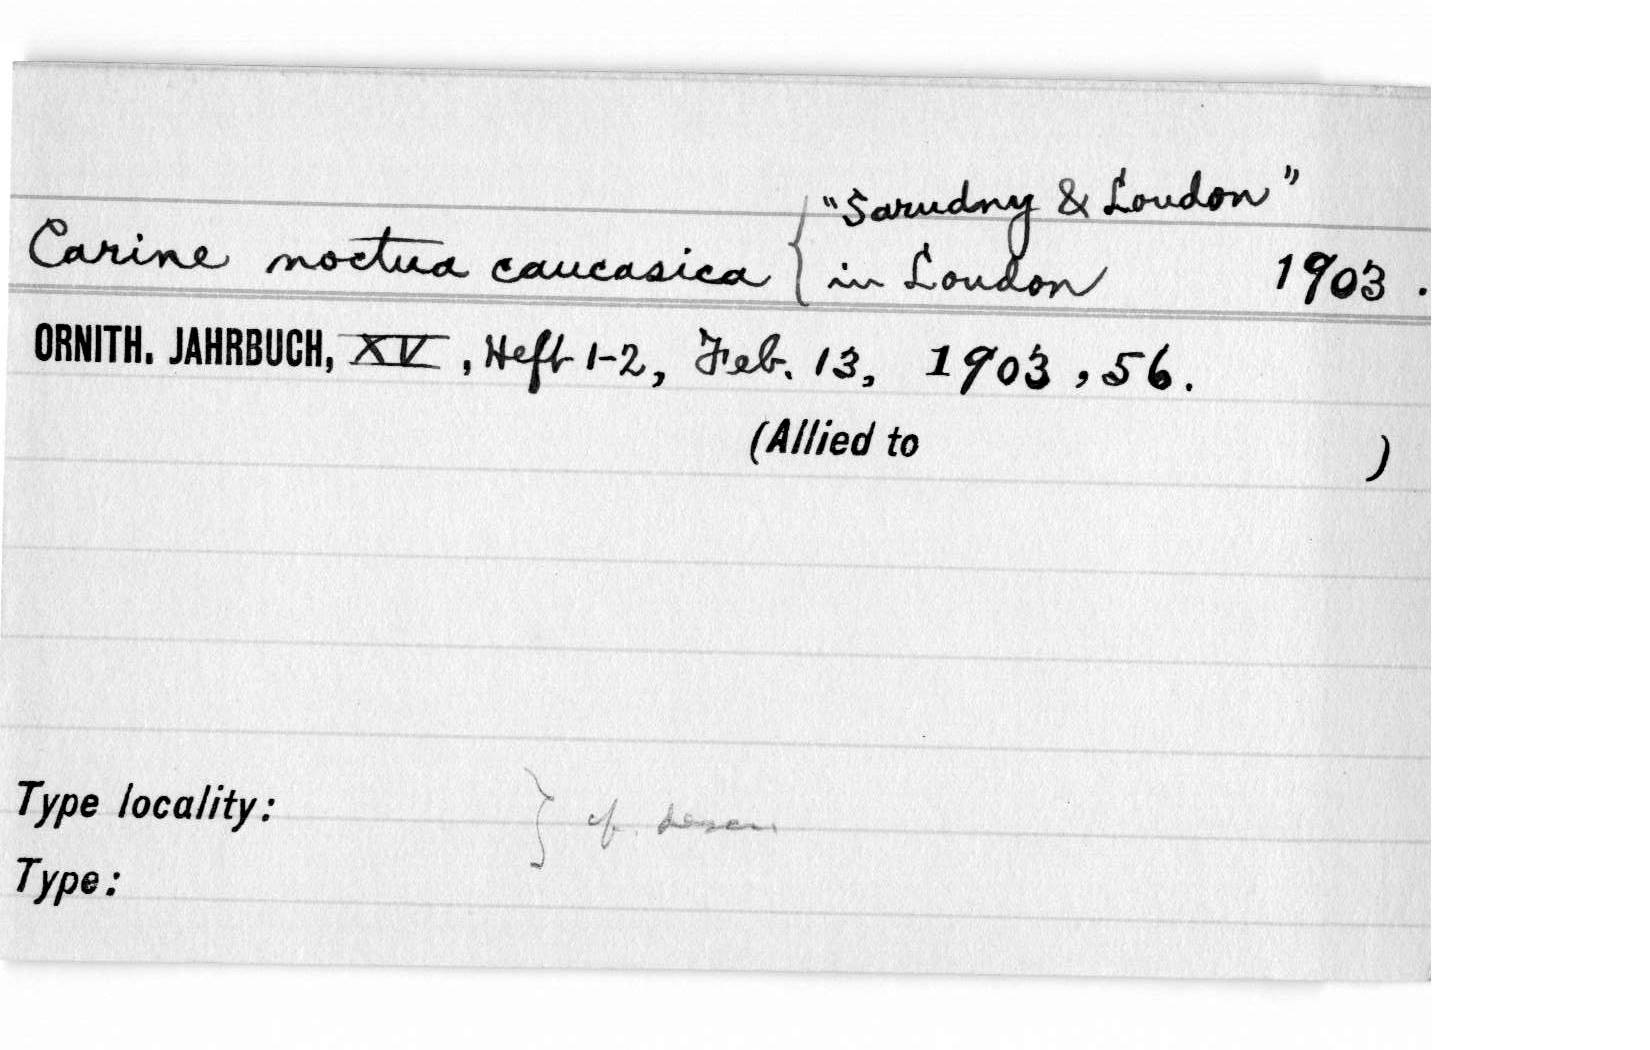 Carine noctua caucasica { "Sarudny & Loudon" in Loudon 1903.
ORNITH. JAHRBUCH, XV, Heft 1-2, Feb. 13, 1903, 56.
(Allied to )
Type locality: } cf. descr.
Type: